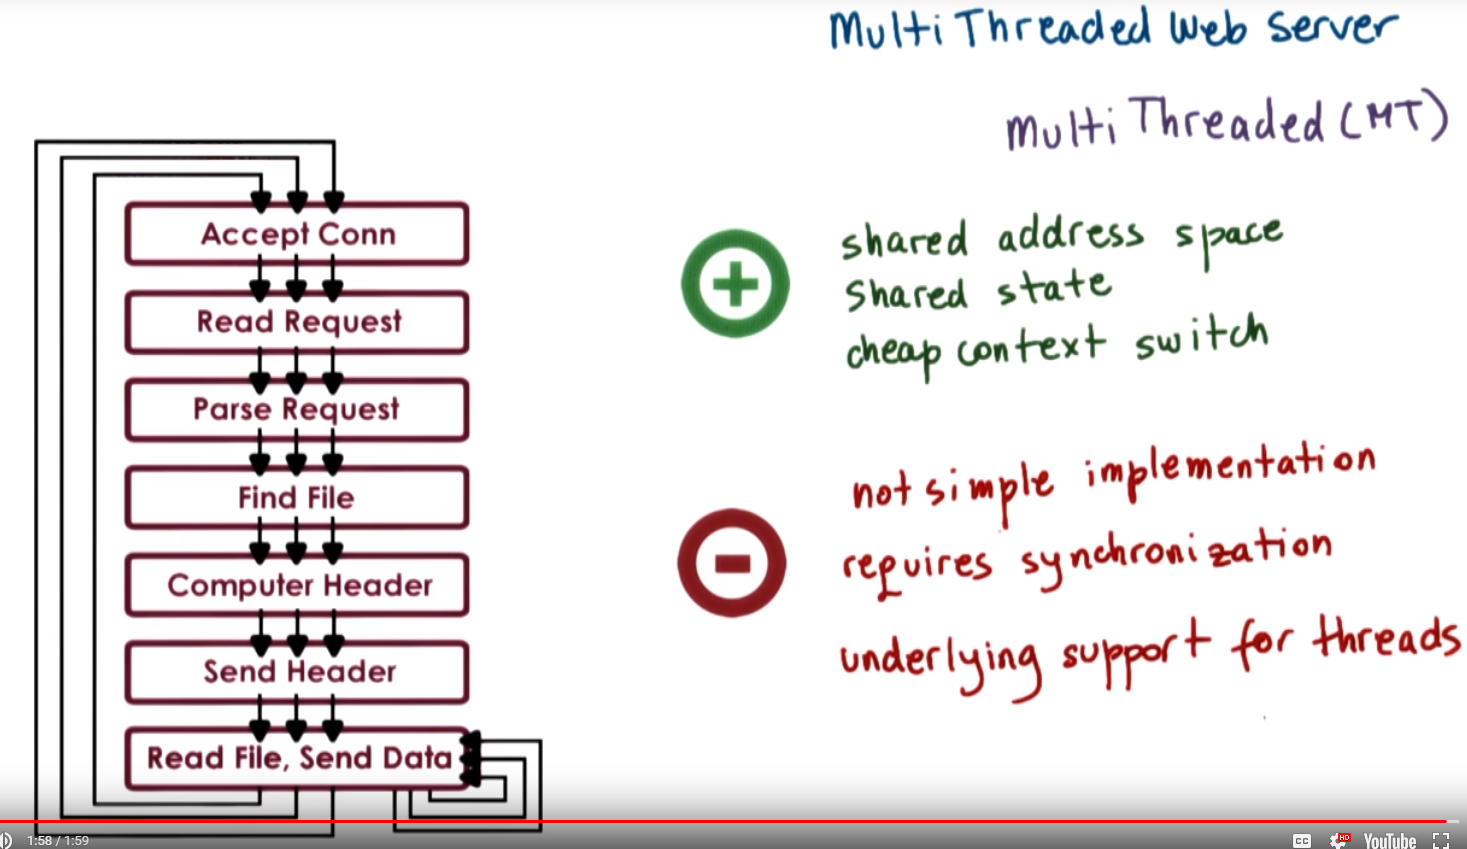 MultiThreaded Web Server
MultiThreaded (MT)
Accept Conn
Read Request
Parse Request
Find File
Computer Header
Send Header
Read File, Send Data
shared address space
shared state
cheap context switch
not simple implementation
requires synchronization
underlying support for threads
1:58 / 1:59
CC
HD
YouTube